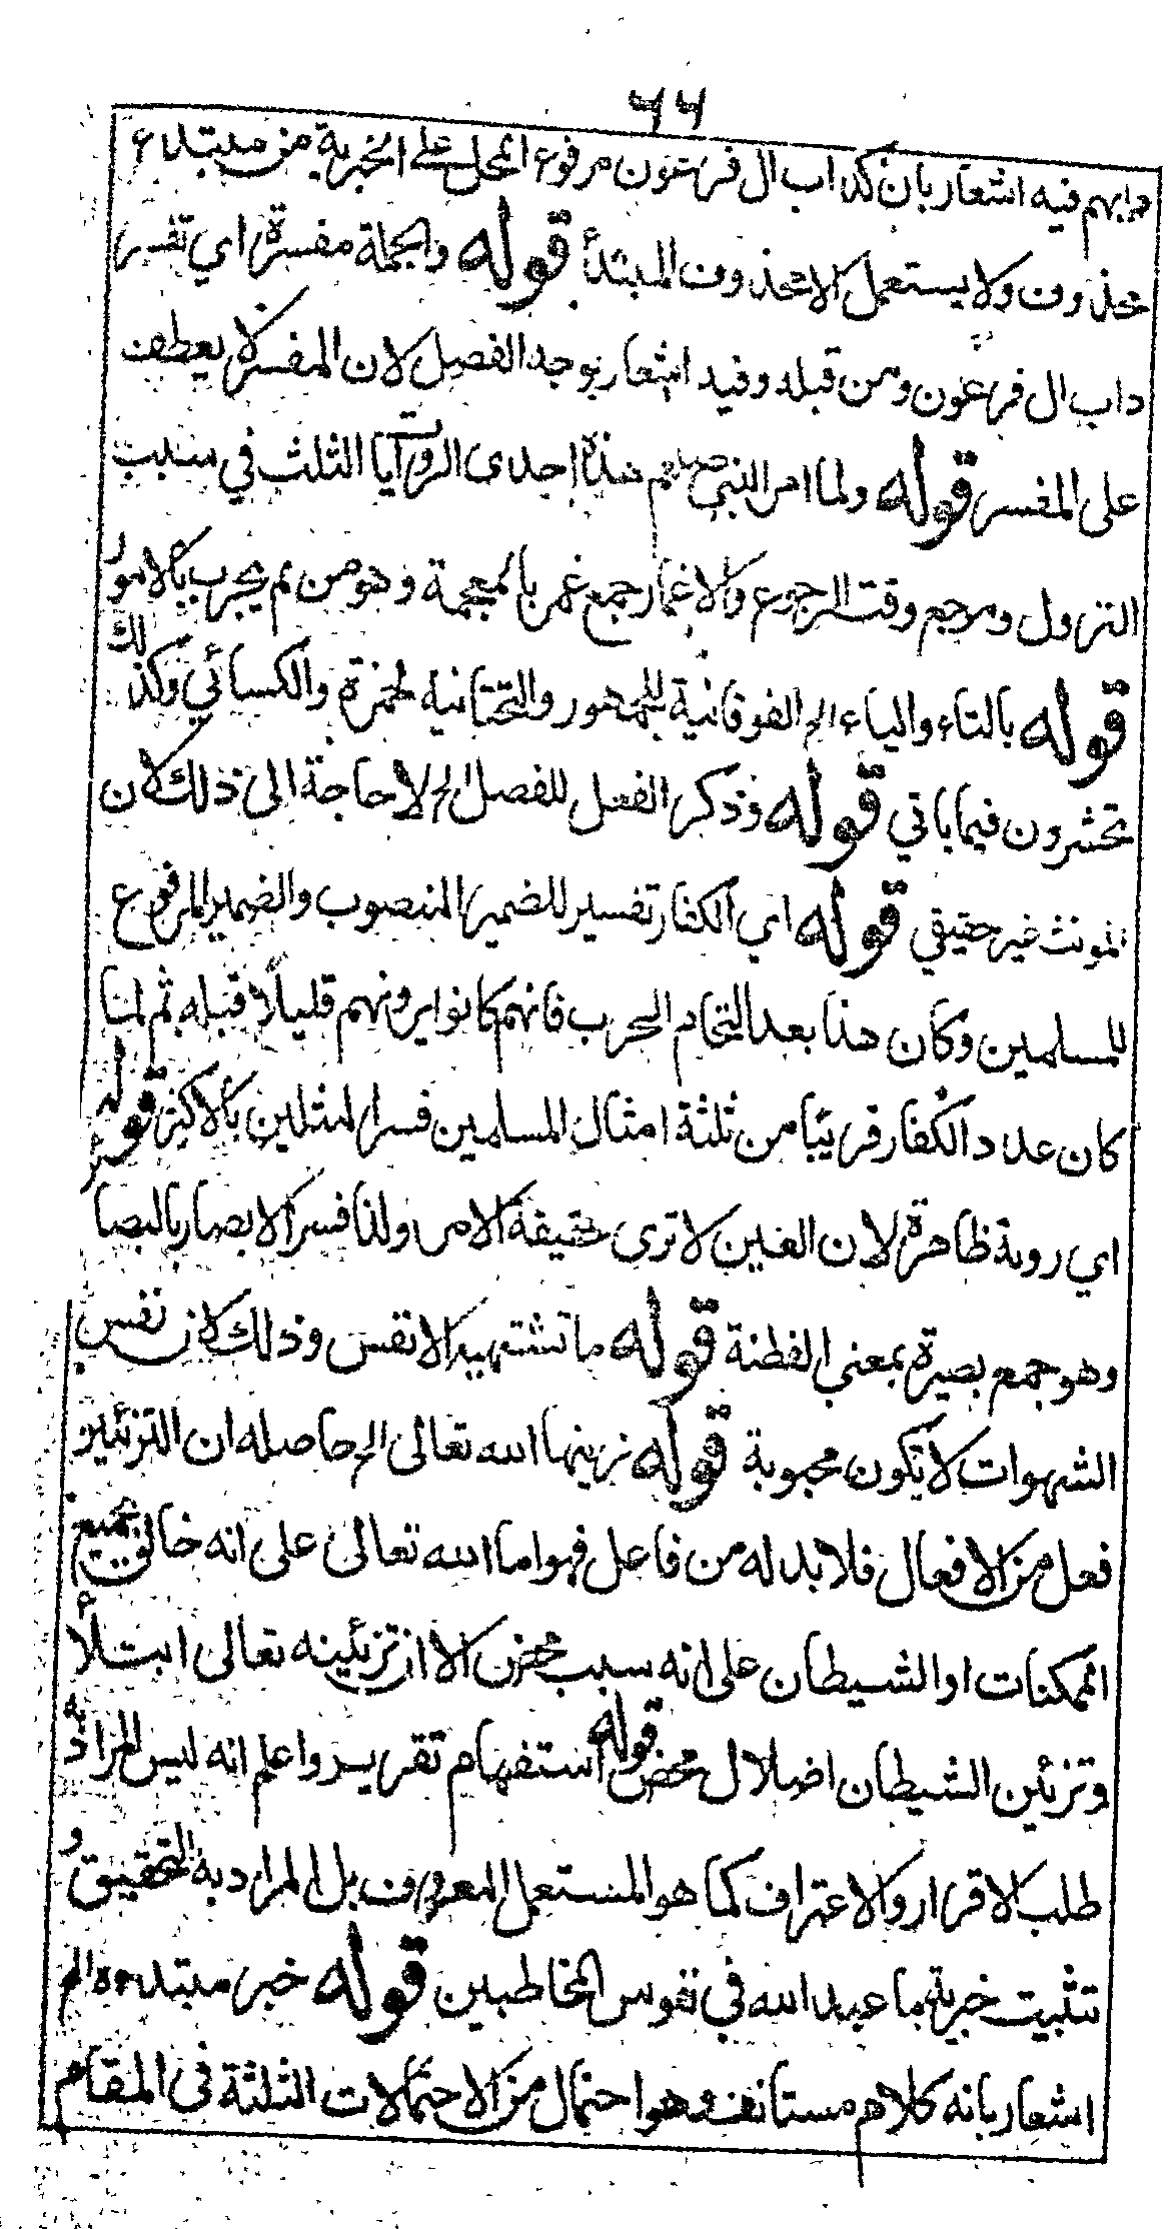 ٦٦
دابهم فيه اشعار بان كداب ال فرعون مرفوع المحل على الخبرية من مبتدء
محذوف ولا يستعمل الا محذوف المبتدأ قوله والجملة مفسرة اي تفسر
داب ال فرعون ومن قبله وفيه اشعار بوجه الفصل لان المفسر لا يعطف
على المفسر قوله ولما امر النبي صلعم هذه احدى الروايات الثلث في سبب
النزول ومرجعه وقت الرجوع والاغمار جمع غمر بالمعجمة وهو من لم يجرب بالامور
قوله بالتاء والياء الخ الفوقانية للجمهور والتحتانية لحمزة والكسائي وكذلك
تحشرون فيما ياتي قوله وذكر الفعل للفصل الخ لا حاجة الى ذلك لان
المونث غير حقيقي قوله اي الكفار تفسير للضمير المنصوب والضمير المرفوع
للمسلمين وكان هذا بعد التحام الحرب فانهم كانوا يرونهم قليلاً قبله ثم لما
كان عدد الكفار قريبا من ثلثة امثال المسلمين فسر المثلين بالاكثر قوله
اي روية ظاهرة لان العين لا ترى حقيقة الامر ولذا فسر الابصار بالبصائر
وهو جمع بصيرة بمعنى الفطنة قوله ما تشتهيه الانفس وذلك لان نفس
الشهوات لا تكون محبوبة قوله زينها الله تعالى الخ حاصله ان التزئين
فعل من الافعال فلا بد له من فاعل فهو اما الله تعالى على انه خالق بجميع
الممكنات او الشيطان على انه سبب محض الا ان تزئينه تعالى ابتلأ
وتزئين الشيطان اضلال محض قوله استفهام تقرير واعلم انه ليس المراد به
طلب الاقرار والاعتراف كما هو المستعمل المعروف بل المراد به التحقيق و
تثبيت خيرية ما عند الله في نفوس المخاطبين قوله خبر مبتدءه الخ
اشعار بانه كلام مستانف وهو احتمال من الاحتمالات الثلثة فى المقام